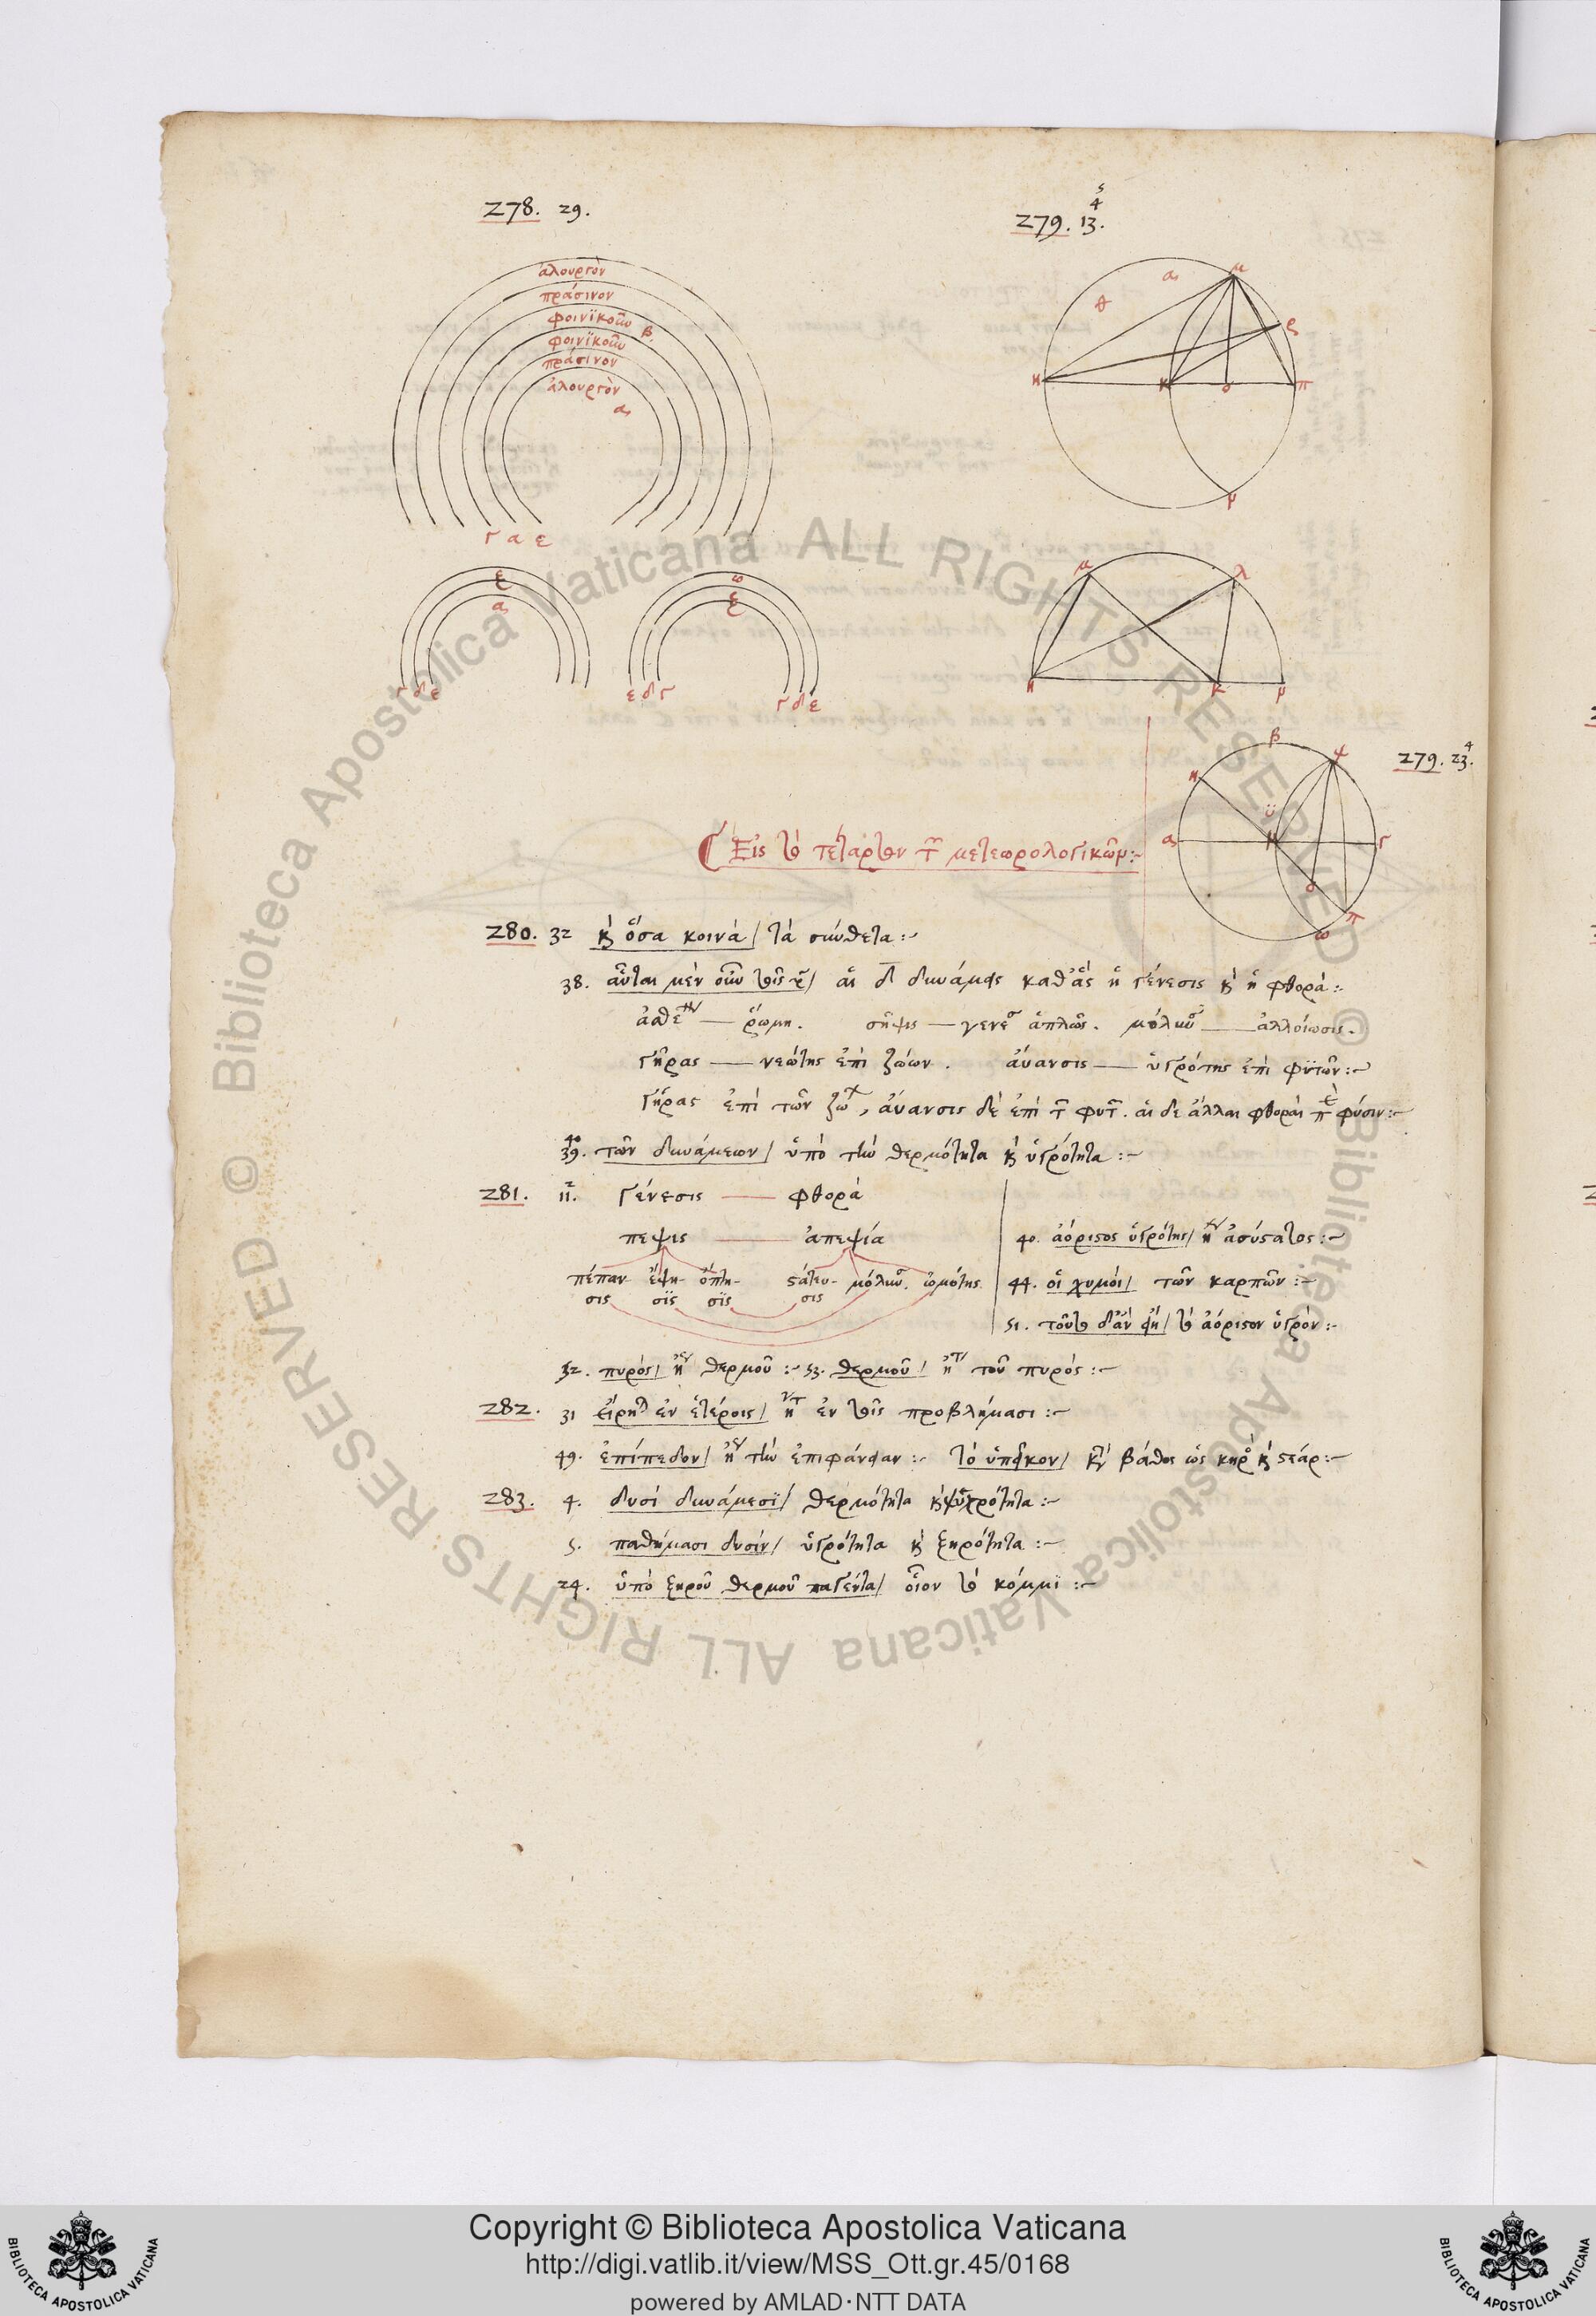 278. 29.
279. 13. 4 5
ἁλουργὸν
πράσινον
φοινϊκοῦν
β
φοινϊκοῦν
πράσινον
ἁλουργὸν
α
Γ α ε
α μ
θ ρ
η κ ο π
μ
ξ
α
Γ δ ε
ω
ξ
ε δ Γ Γ δ ε
μ λ
η κ μ
279. 23. 4
β ψ
η
ϋ
α κ Γ
ο π
ω
Εἰς τὸ τέταρτον τῶν μετεωρολογικῶν :~
280. 32 κὶ ὅσα κοινά / τὰ σύνθετα :~
38. αὗται μὲν οὖν / αἱ δ δυνάμεις καθ' ἃς ἡ γένεσις κὶ ἡ φθορά :~
ῥώμη. σῆψις — ἁπλῶς. — ἀλλοίωσις.
γῆρας — νεώτης ἐπὶ ζώων. αὔανσις — ὑγρότης ἐπὶ φϋτῶν :~
γῆρας ἐπὶ τῶν ζώ, αὔανσις δὲ ἐπὶ τ φυτ. αἱ δὲ ἄλλαι φθοραὶ φύσιν :~
40
39. τῶν δυνάμεων / ὑπὸ τὴν θερμότητα κὶ ὑγρότητα :~
281. 11. 2 γένεσις — φθορὰ
πεψις — ἀπεψία
πέπαν- ἕψη- ὄπτη- στάτευ- μόλυν. ὠμότης
σις σϊς σϊς σις
40. ἀόριστος ὑγρότης / ἢ ἀσύστατος :~
44. οἱ χυμοί / τῶν καρπῶν :~
51. τοῦτο δ' ἂν εἴη / τὸ ἀόριστον ὑγρόν :~
52. πυρός / θερμοῦ :~ 53. θερμοῦ / τοῦ πυρός :~
282. 31 εἴρηται ἐν ἑτέροις / ἐν τοῖς προβλήμασι :~
49. ἐπίπεδον / τὴν ἐπιφάνειαν :~ τὸ ὑπεῖκον / βάθος ὡς κηρὸς κὶ στέαρ :~
283. 4. δυσί δυνάμεσϊ / θερμότητα κὶ ψυχρότητα :~
5. παθήμασι δυσίν / ὑγρότητα κὶ ξηρότητα :~
24. ὑπὸ ξηροῦ θερμοῦ παγέντα / οἷον τὸ κόμμϊ :~
Copyright © Biblioteca Apostolica Vaticana
http://digi.vatlib.it/view/MSS_Ott.gr.45/0168
powered by AMLAD·NTT DATA
BIBLIOTECA APOSTOLICA VATICANA
BIBLIOTECA APOSTOLICA VATICANA
© Biblioteca Apostolica Vaticana ALL RIGHTS RESERVED
© Biblioteca Apostolica Vaticana ALL RIGHTS RESERVED